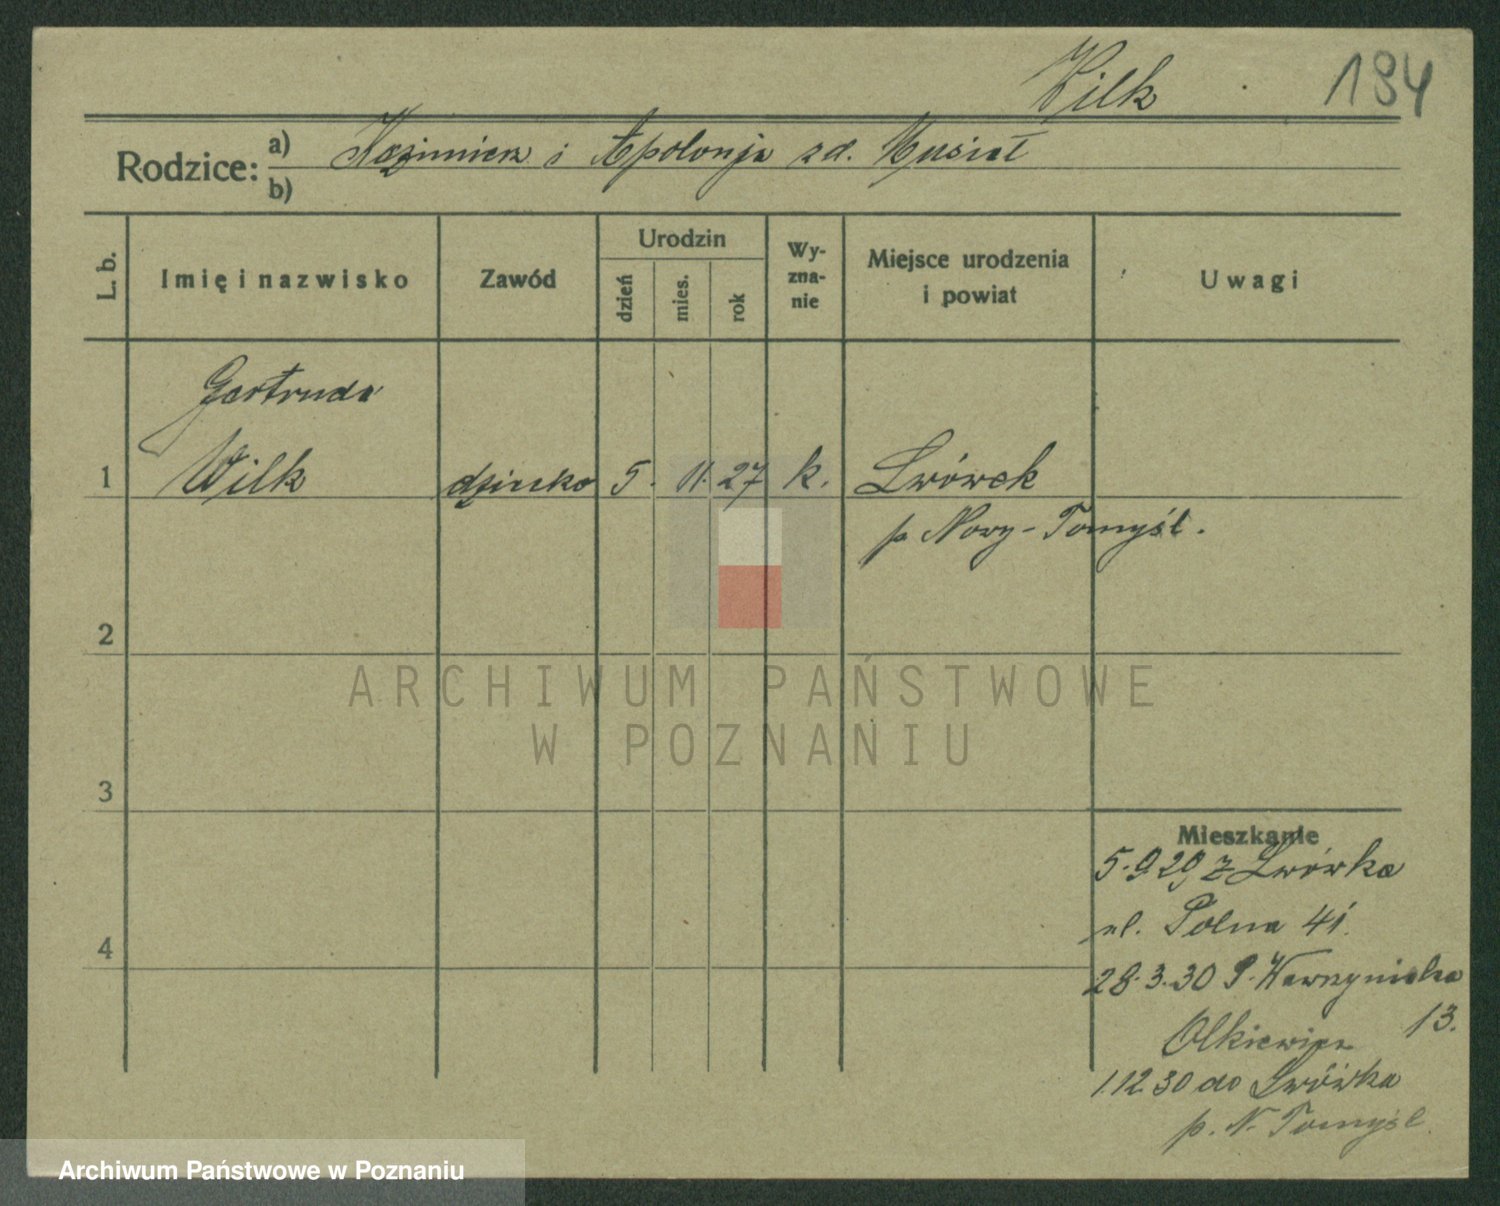 Wilk
184
Rodzice: a) Kazimierz i Apolonja zd. Musiał
b)
L. b.
Imię i nazwisko
Zawód
Urodzin
dzień
mies.
rok
Wy-
zna-
nie
Miejsce urodzenia
i powiat
Uwagi
Gertruda
1 Wilk dziecko 5. 11. 27 k. Lwówek
p. Nowy-Tomyśl.
2
3
4
Mieszkanie
5.9 29 z Lwówka
ul. Polna 41.
28.3.30 P. Wawrzyniaka
13.
Olkiewicz
1.12.30 do Lwówka
p. N. Tomyśl.
ARCHIWUM PAŃSTWOWE
W POZNANIU
Archiwum Państwowe w Poznaniu